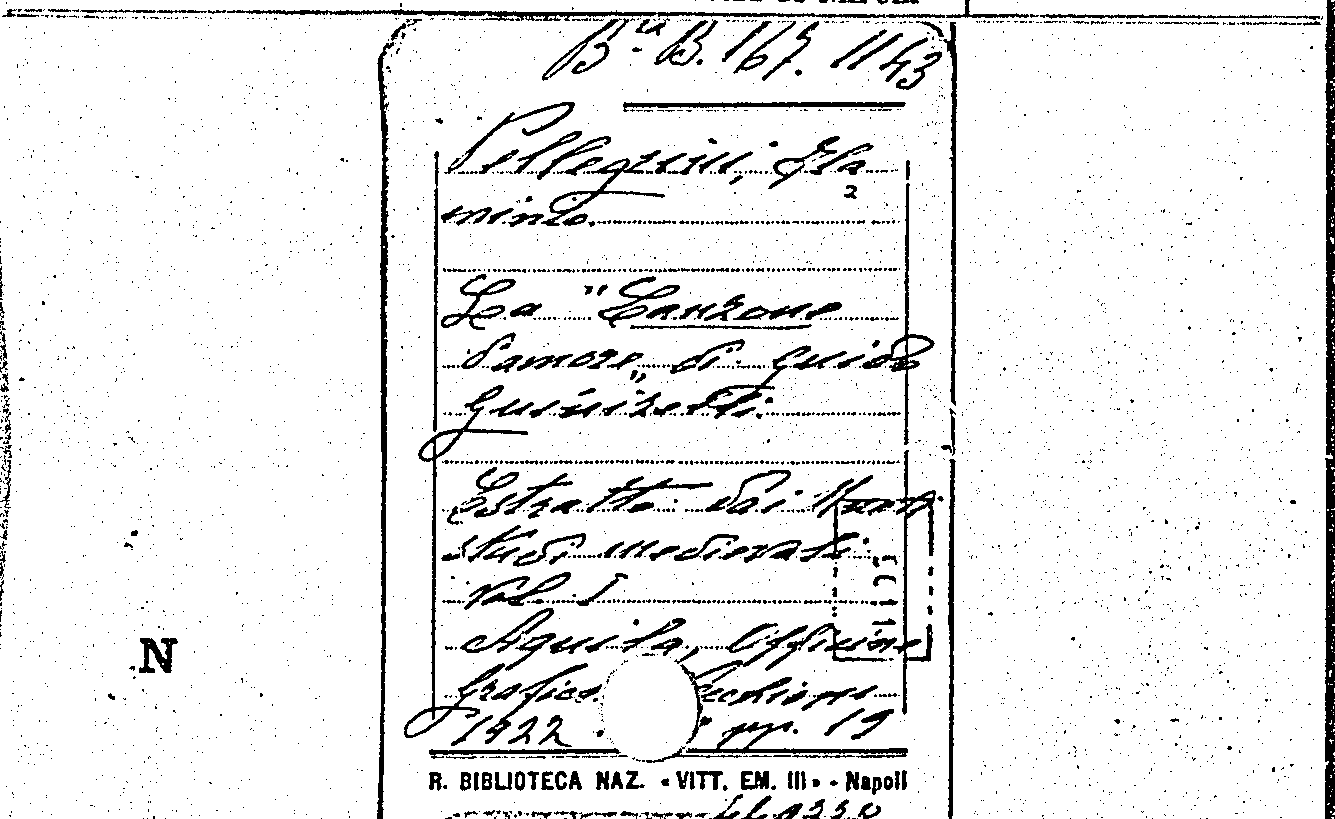 Bta B. 167. 1143
Pellegrini, Fla
2
minio.
La "Canzone
d'amore" di Guido
Guinizelli.
Estratto dai Nuovi
studi medievali
Vol. I
Aquila, Officine
Grafiche Vecchioni
1922. pp. 19
N
R. BIBLIOTECA NAZ. «VITT. EM. III» - Napoli